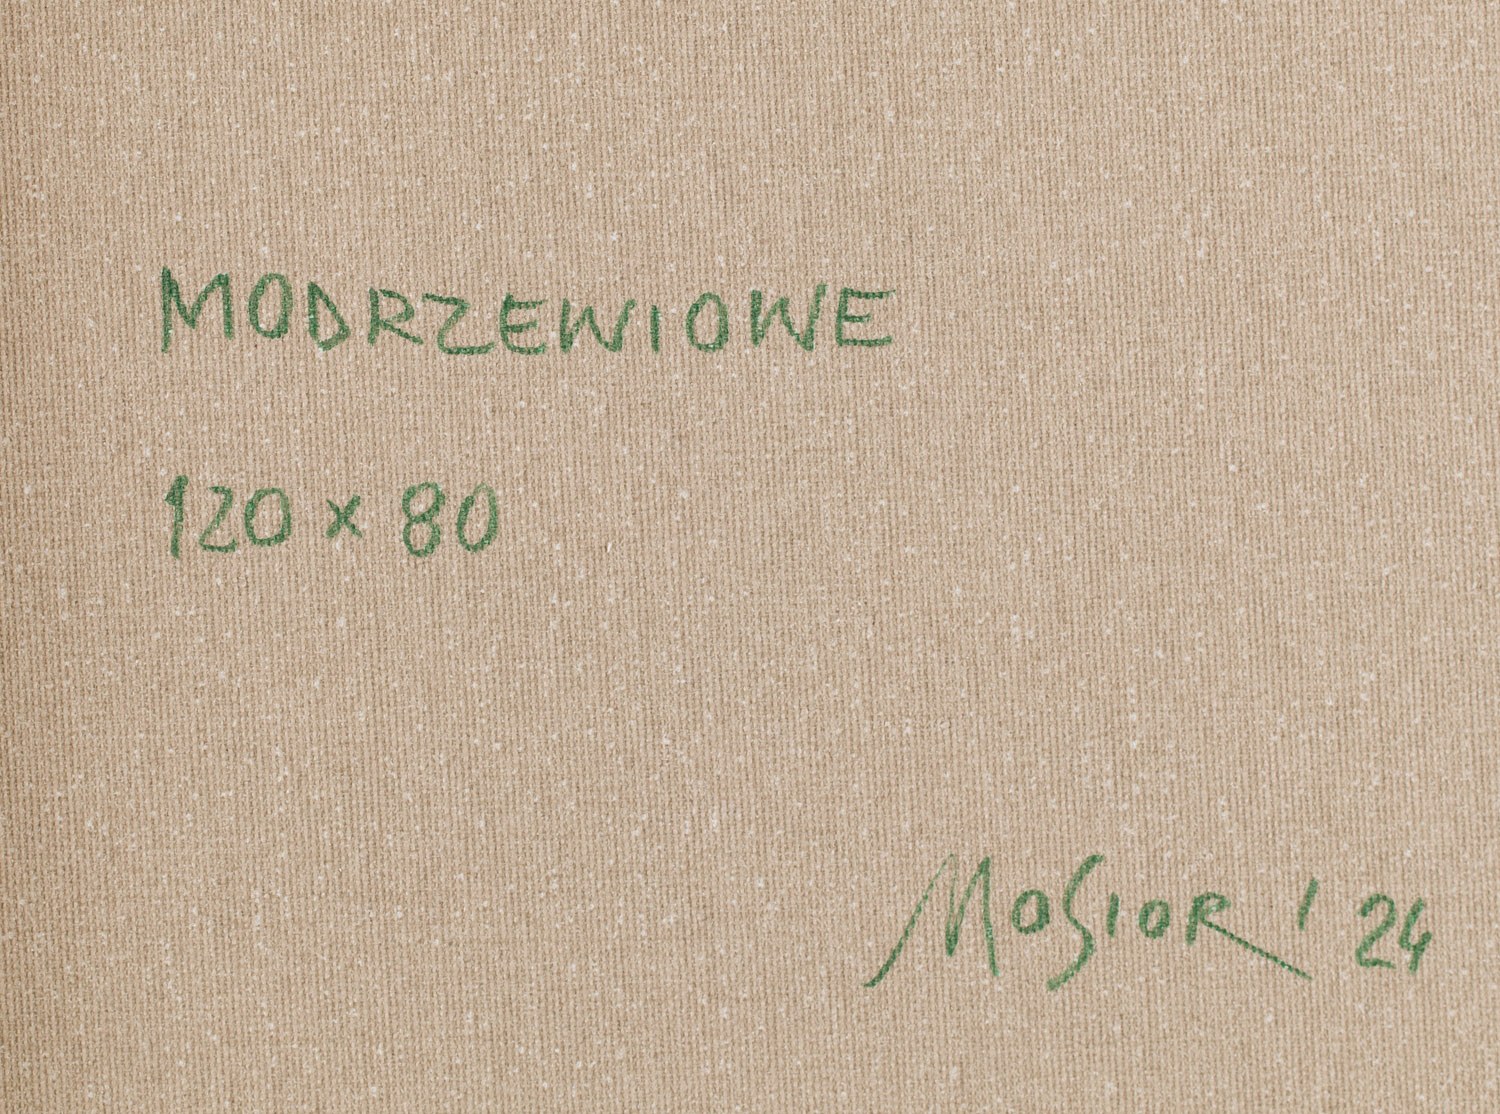 MODRZEWIOWE
120 x 80
MOSIOR '24